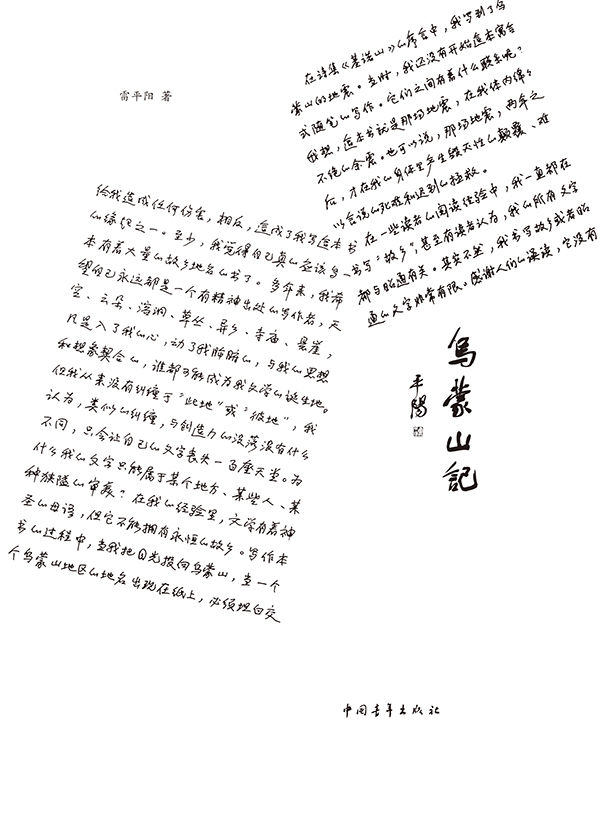 雷平阳 著
在诗集《基诺山》的序言中，我写到了乌
蒙山的地震。当时，我还没有开始这本寓言
式随笔的写作。它们之间有着什么联系呢？
我想，这本书就是那场地震，在我体内绵绵
不绝的余震。也可以说，那场地震，两年之
后，才在我的身体里产生毁灭性的颠覆、难
以言说的死难和迟到的拯救。
在一些读者的阅读经验中，我一直都在
书写"故乡"，甚至有读者认为，我的所有文字
都与昭通有关。其实不然，我书写故乡或者昭
通的文字非常有限。感谢人们的误读，它没有
给我造成任何伤害，相反，造成了我写这本书
的缘起之一。至少，我觉得自己真的应该写一
本有着大量的故乡地名的书了。多年来，我希
望自己永远都是一个有精神出处的写作者，天
空、云朵、溶洞、草丛、异乡、寺庙、悬崖，
凡是入了我的心，动了我肺腑的，与我的思想
和想象契合的，谁都可能成为我文学的诞生地。
但我从来没有纠缠于"此地"或"彼地"，我
认为，类似的纠缠，与创造力的没落没有什么
不同，只会让自己的文字丧失一百座天堂。为
什么我的文字只能属于某个地方、某些人、某
种狭隘的审美？在我的经验里，文学有着神
圣的母语，但它不能拥有永恒的故乡。写作本
书的过程中，当我把目光投向乌蒙山，当一个
个乌蒙山地区的地名出现在纸上，必须坦白交
乌蒙山記
平陽
中国青年出版社